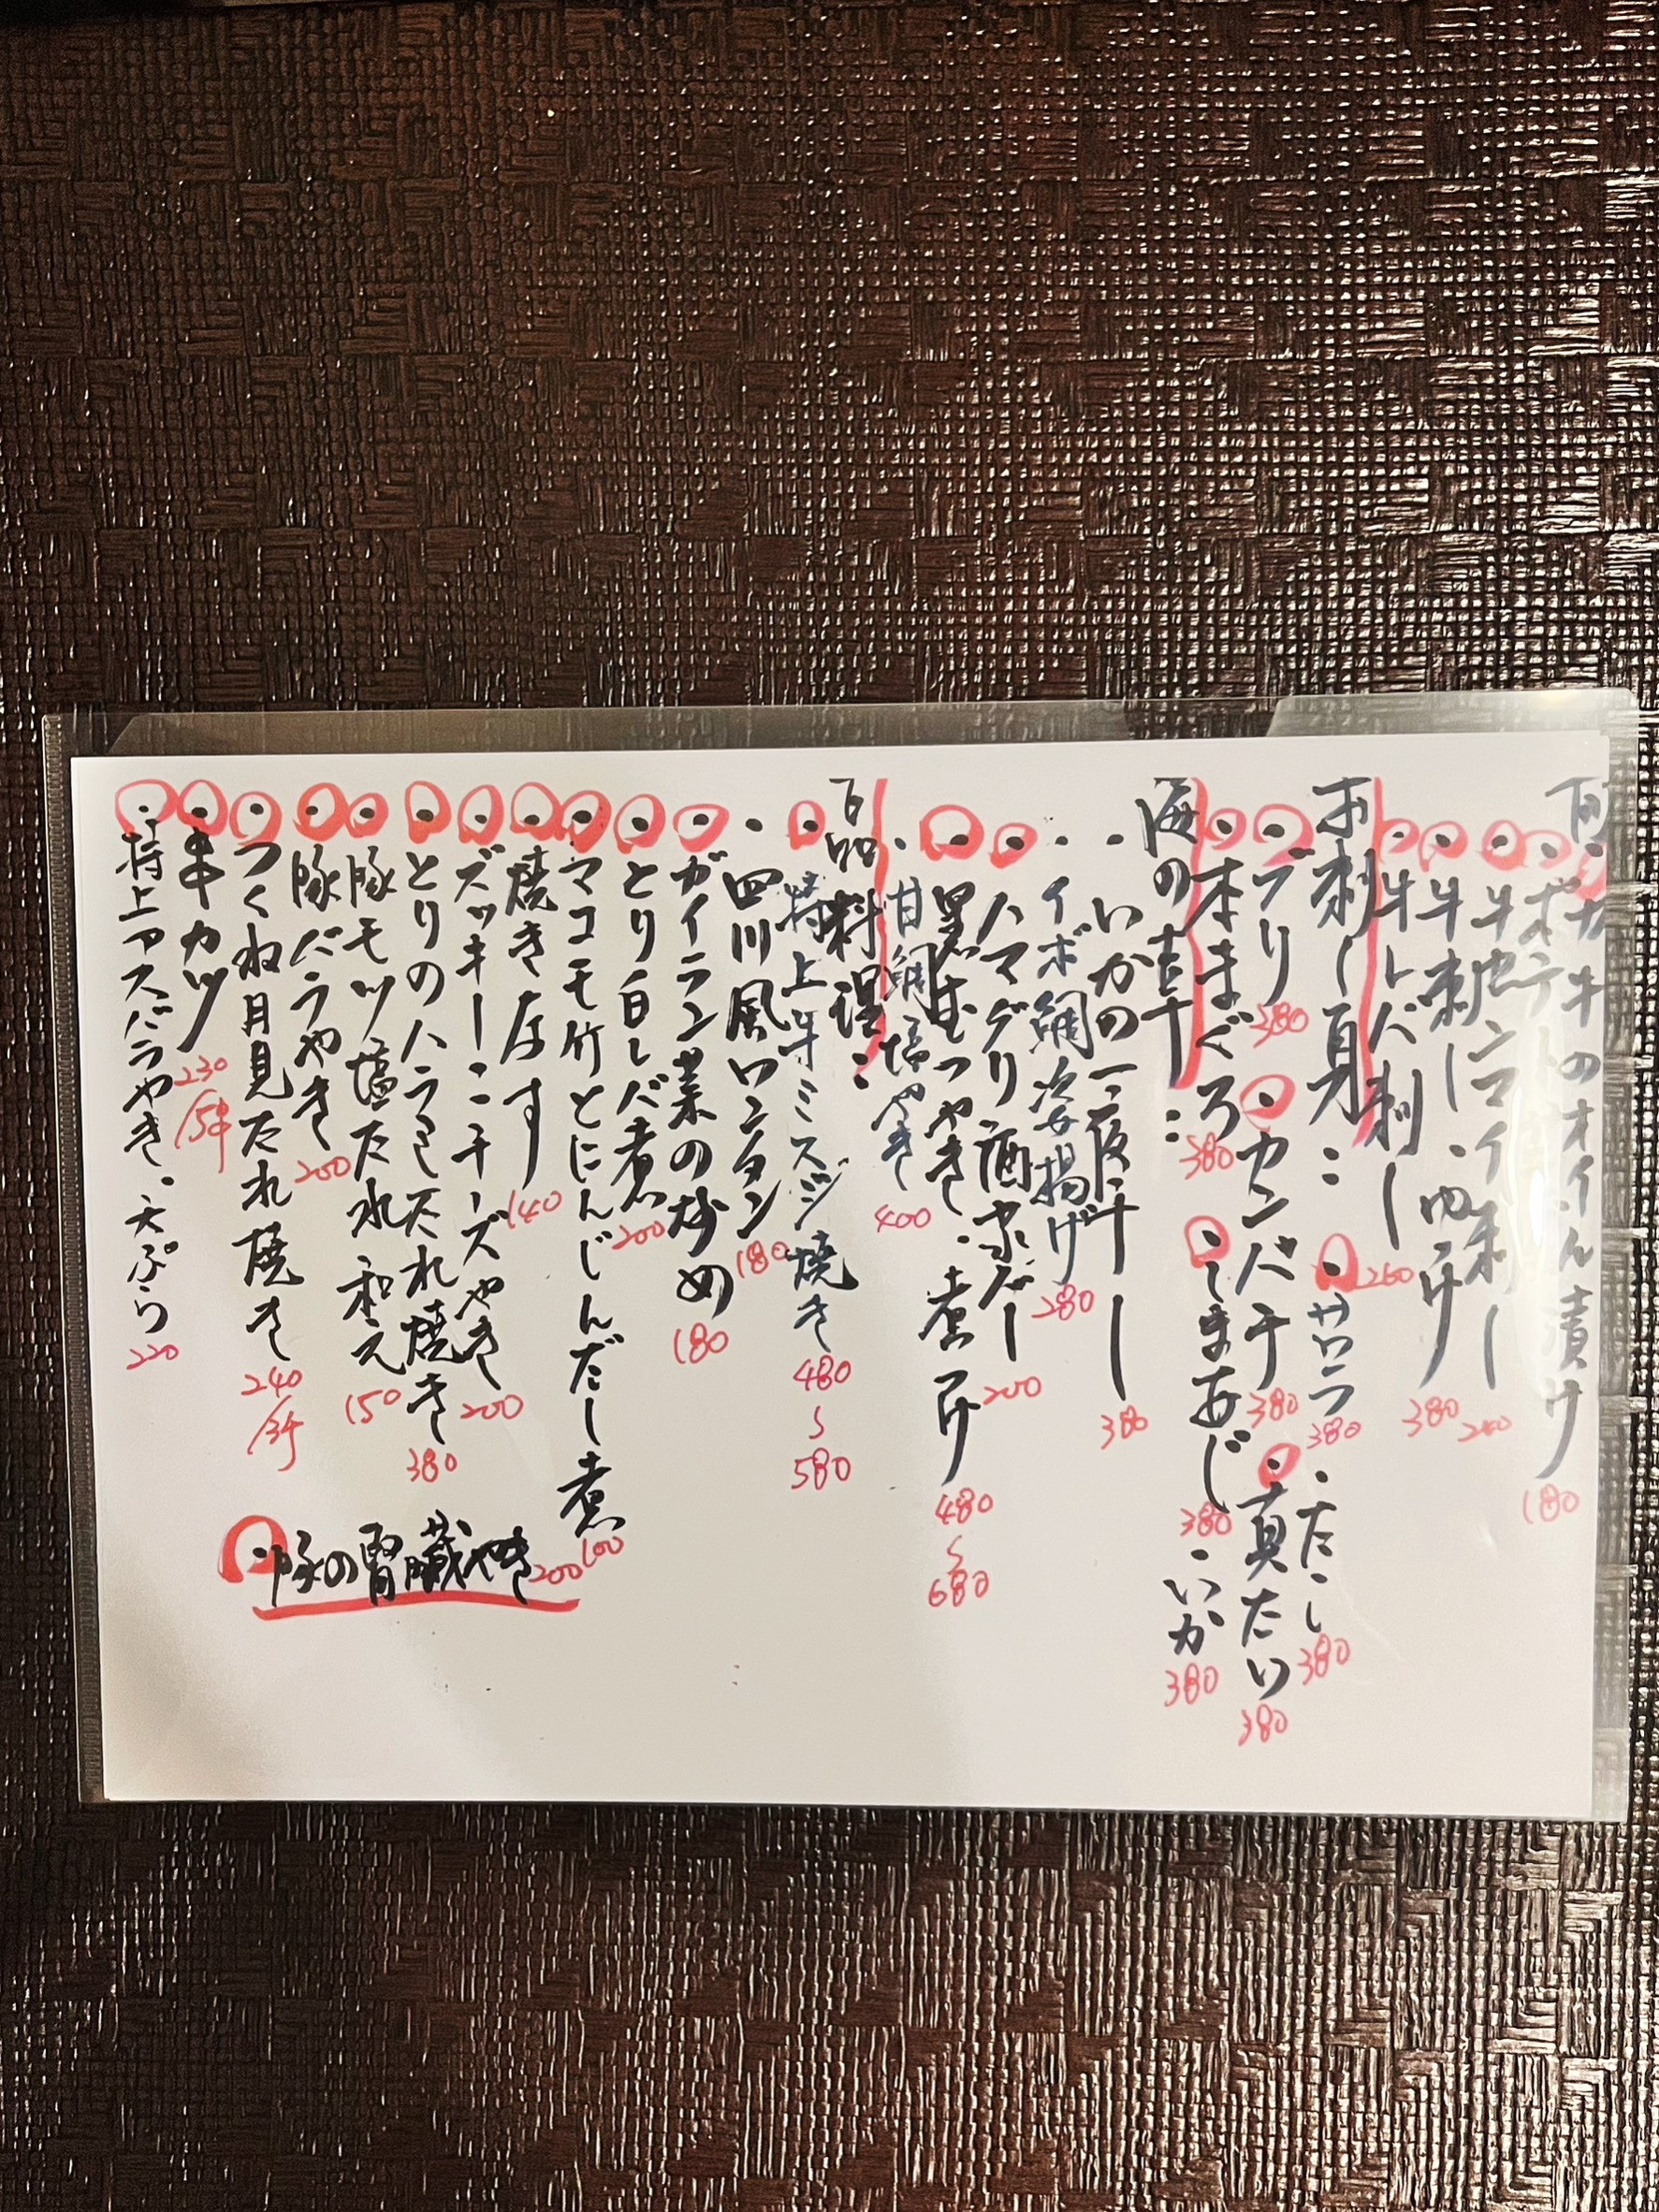 カキのオイル漬け 180
ポテト
牛センマイ刺し 280
牛刺し、 380
牛レバ刺し 260
お刺し身：
・サワラ 380 ・たこ 380
・ブリ 380 ・カンパチ 380 ・真たい 380
・本まぐろ 380 ・しまあじ 380 ・いか 380
海の幸：
・いかの一夜干し 380
・イボ鯛姿揚げ 280
・ハマグリ酒 200
・黒むつやき、煮つけ 480〜680
・甘鯛塩やき 400
一品料理：
・特上牛ミスジ焼き 480〜580
・四川風ワンタン 180
・ガイラン菜の炒め 180
・とり白レバ煮 200
・マコモ竹とにんじんだし煮 100
・焼きなす 140
・ズッキーニチーズやき 200
・とりのハラミたれ焼き 380
・豚モツ塩たれ和え 150
・豚バラやき 200
・つくね月見たれ焼き 240
・串カツ 230/5串
・特上アスバラやき、天ぷら 220
・豚の腎臓やき 200